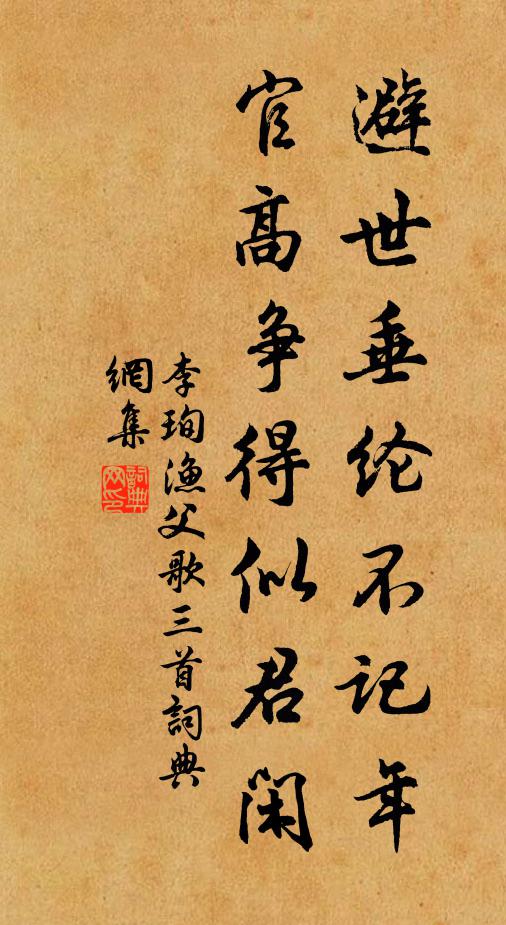 避世垂纶不记年
官高争得似君闲
李珣漁父歌三首詞典
網集
詞典
网印